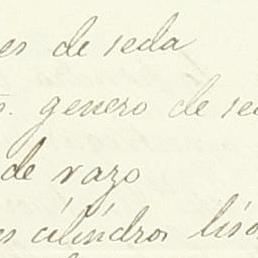 es de seda
s. genero de se
de vazo
es cilindros liso